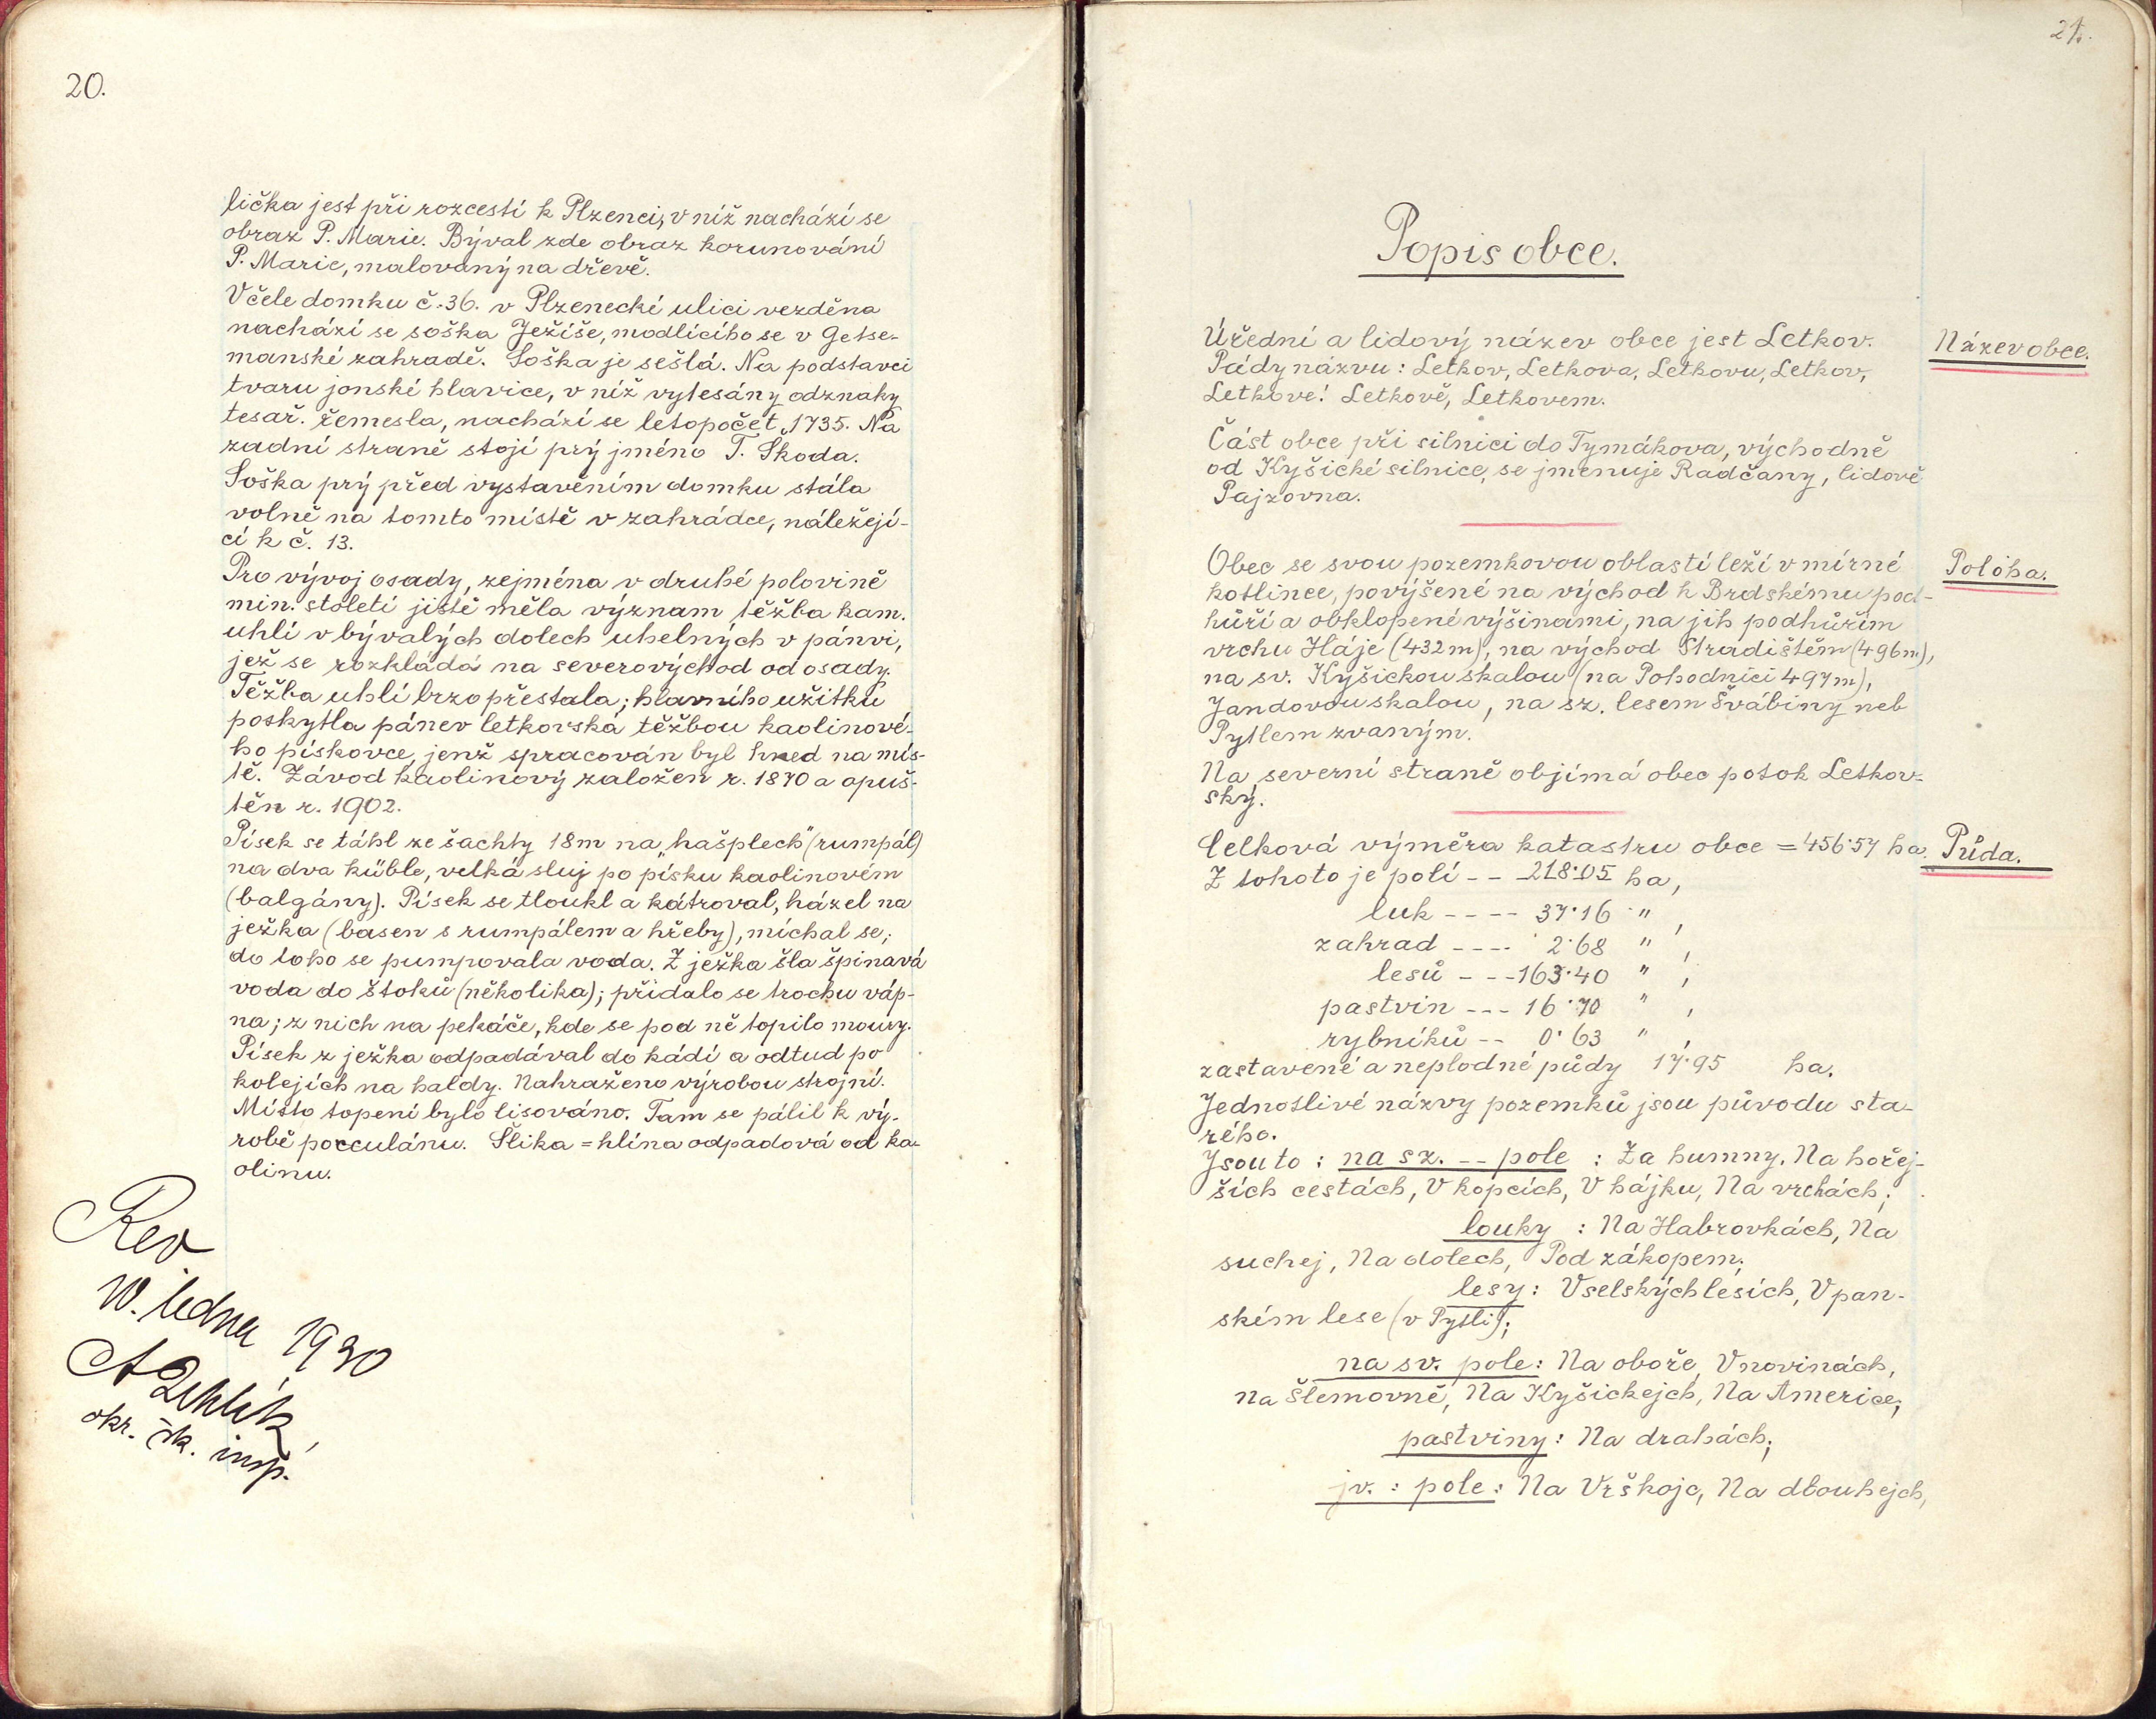 20.
lička jest při rozcestí k Plzenci, v níž nachází se
obraz P. Marie. Býval zde obraz korunování
P. Marie, malovaný na dřevě.
V čele domku č. 36. v Plzenecké ulici vezděna
nachází se soška Ježíše, modlícího se v Getse-
manské zahradě. Soška je sešlá. Na podstavci
tvaru jonské hlavice, v níž vytesány odznaky
tesař. řemesla, nachází se letopočet 1735. Na
zadní straně stojí prý jméno T. Škoda.
Soška prý před vystavěním domku stála
volně na tomto místě v zahrádce, náležejí-
cí k č. 13.
Pro vývoj osady, zejména v druhé polovině
min. století jistě měla význam těžba kam.
uhlí v bývalých dolech uhelných v pánvi,
jež se rozkládá na severovýchod od osady.
Těžba uhlí brzo přestala; hlavního užitku
poskytla pánev letkovská těžbou kaolinové-
ho pískovce, jenž spracován byl hned na mís-
tě. Závod kaolinový založen r. 1870 a opuš-
těn r. 1902.
Písek se táhl ze šachty 18m na „hašplech" (rumpál)
na dva küble, velká sluj po písku kaolinovém
(balgány). Písek se tloukl a kátroval, házel na
ježka (basen s rumpálem a hřeby), míchal se;
do toho se pumpovala voda. Z ježka šla špinavá
voda do štoků (několika); přidalo se trochu váp-
na; z nich na pekáče, kde se pod ně topilo moury.
Písek z ježka odpadával do kádí a odtud po
kolejích na haldy. Nahraženo výrobou strojní.
Místo topení bylo lisováno. Tam se pálil k vý-
robě porculánu. Šlika = hlína odpadová od ka-
olinu.
Rev.
v lednu 1930
okr. šk. insp.
21.
Popis obce.
Úřední a lidový název obce jest Letkov.
Název obce.
Pády názvu: Letkov, Letkova, Letkovu, Letkov,
Letkove! Letkově, Letkovem.
Část obce při silnici do Tymákova, východně
od Kyšické silnice, se jmenuje Radčany, lidově
Pajzovna.
Obec se svou pozemkovou oblastí leží v mírné
Poloha.
kotlince, povýšené na východ k Brdskému pod-
hůří a obklopené výšinami, na jih podhůřím
vrchu Háje (432m), na východ Hradištěm (496m),
na sv. Kyšickou skalou (na Pohodnici 497m),
Jandovou skalou, na sz. lesem Švábiny neb
Pytlem zvaným.
Na severní straně objímá obec potok Letkov-
ský.
Celková výměra katastru obce = 456·57 ha.
Půda.
Z tohoto je polí -- 218·05 ha,
luk ---- 37·16 " ,
zahrad ---- 2·68 " ,
lesů --- 163·40 " ,
pastvin --- 16·70 " ,
rybníků -- 0·63 " ,
zastavené a neplodné půdy 17·95 ha.
Jednotlivé názvy pozemků jsou původu sta-
rého.
Jsou to: na sz. -- pole : Za humny, Na hořej-
ších cestách, V kopcích, V hájku, Na vrchách;
louky : Na Habrovkách, Na
suchej, Na dolech, Pod zákopem;
lesy: V selských lesích, V pan-
ském lese (v Pytli);
na sv. pole: Na oboře, V novinách,
Na Šlemovně, Na Kyšickejch, Na Americe;
pastviny: Na drahách;
jv. : pole: Na Vrškojc, Na dlouhejch,